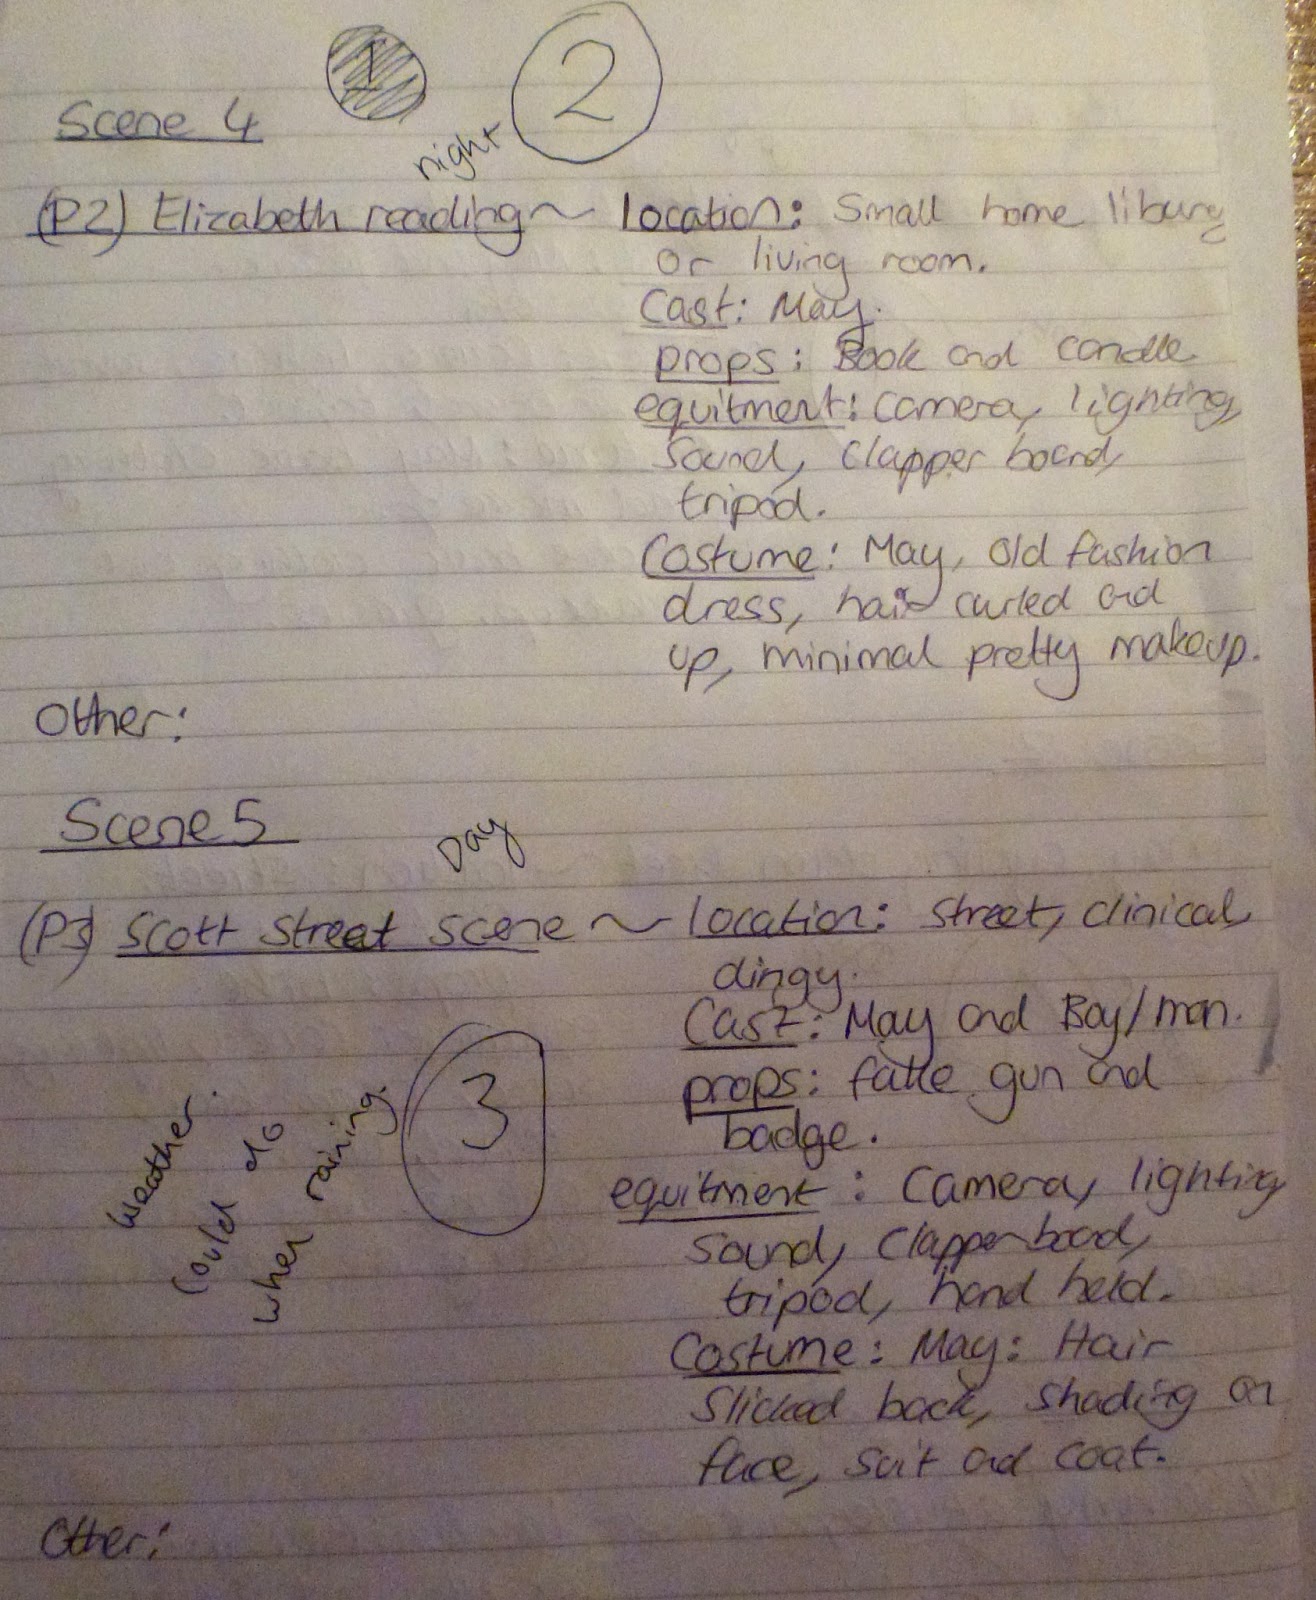 1
2
Scene 4
night
(P2) Elizabeth reading ~ location: Small home libury
or living room.
Cast: May.
props: Book and candle
equitment: camera, lighting,
Sound, Clapper board,
tripod.
Costume: May, old fashion
dress, hair curled and
up, minimal pretty makeup.
Other:
Scene 5
Day
(P3) Scott Street scene ~ location: Street, clinical,
dingy.
Cast: May and Boy/man.
props: fake gun and
badge.
3
weather.
Could do
when raining.
equitment: Camera, lighting
Sound, Clapperboard,
tripod, hand held.
Costume: May: Hair
Slicked back, shading on
face, Suit and coat.
Other: